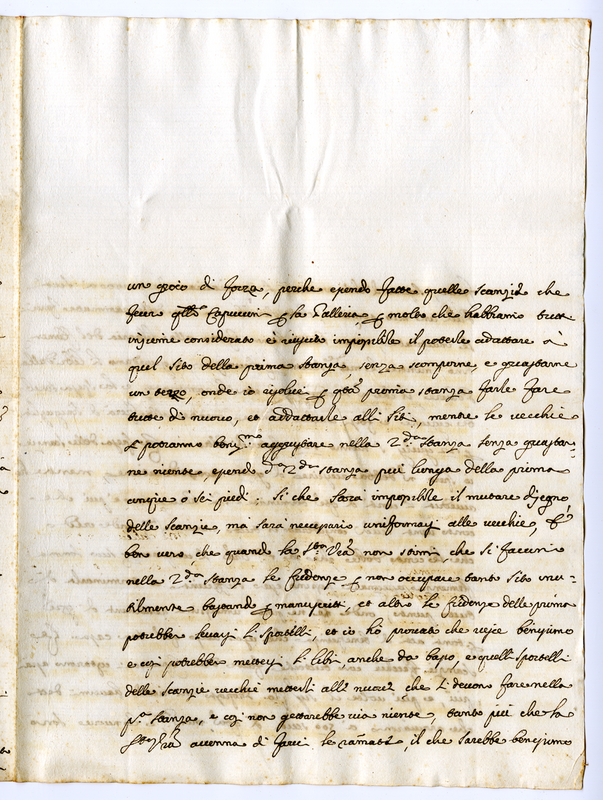 un poco di forza, perche essendo fatte quelle scanzie che
fecer Capuccini la Galleria, molto che habbiamo tutti
insieme considerato è riuscito impossibile il poterle adattare à
quel sito della prima stanza senza scomporne e guastarne
un terzo, onde io risolvei prima stanza farle fare
tutte di nuovo, et addattarle alli siti, mentre le vecchie
si potranno aggiustare nella 2.da stanza senza guastar-
ne niente, essendo d.a 2.da stanza più lunga della prima
cinque ò sei piedi. Si che sarà impossibile il mutare disegno
delle scanzie, ma sarà necessario uniformarsi alle vecchie, è
ben vero che quando la non stimi, che si faccino
nella 2.da stanza le credenze non occupare tanto sito inu-
tilmente bastando manuscritti, et altro le credenze della prima
potrebbe levarsi li sportelli, et ciò hò provato che riesce benissimo
e così potrebbe mettersi li libri anche da basso, e quelli sportelli
delle scanzie vecchie metterli alle nuove che si devon fare nella
p.a stanza, e così non gettarebbe via niente, tanto più che la
accenna di farci le ramate, il che sarebbe benissimo